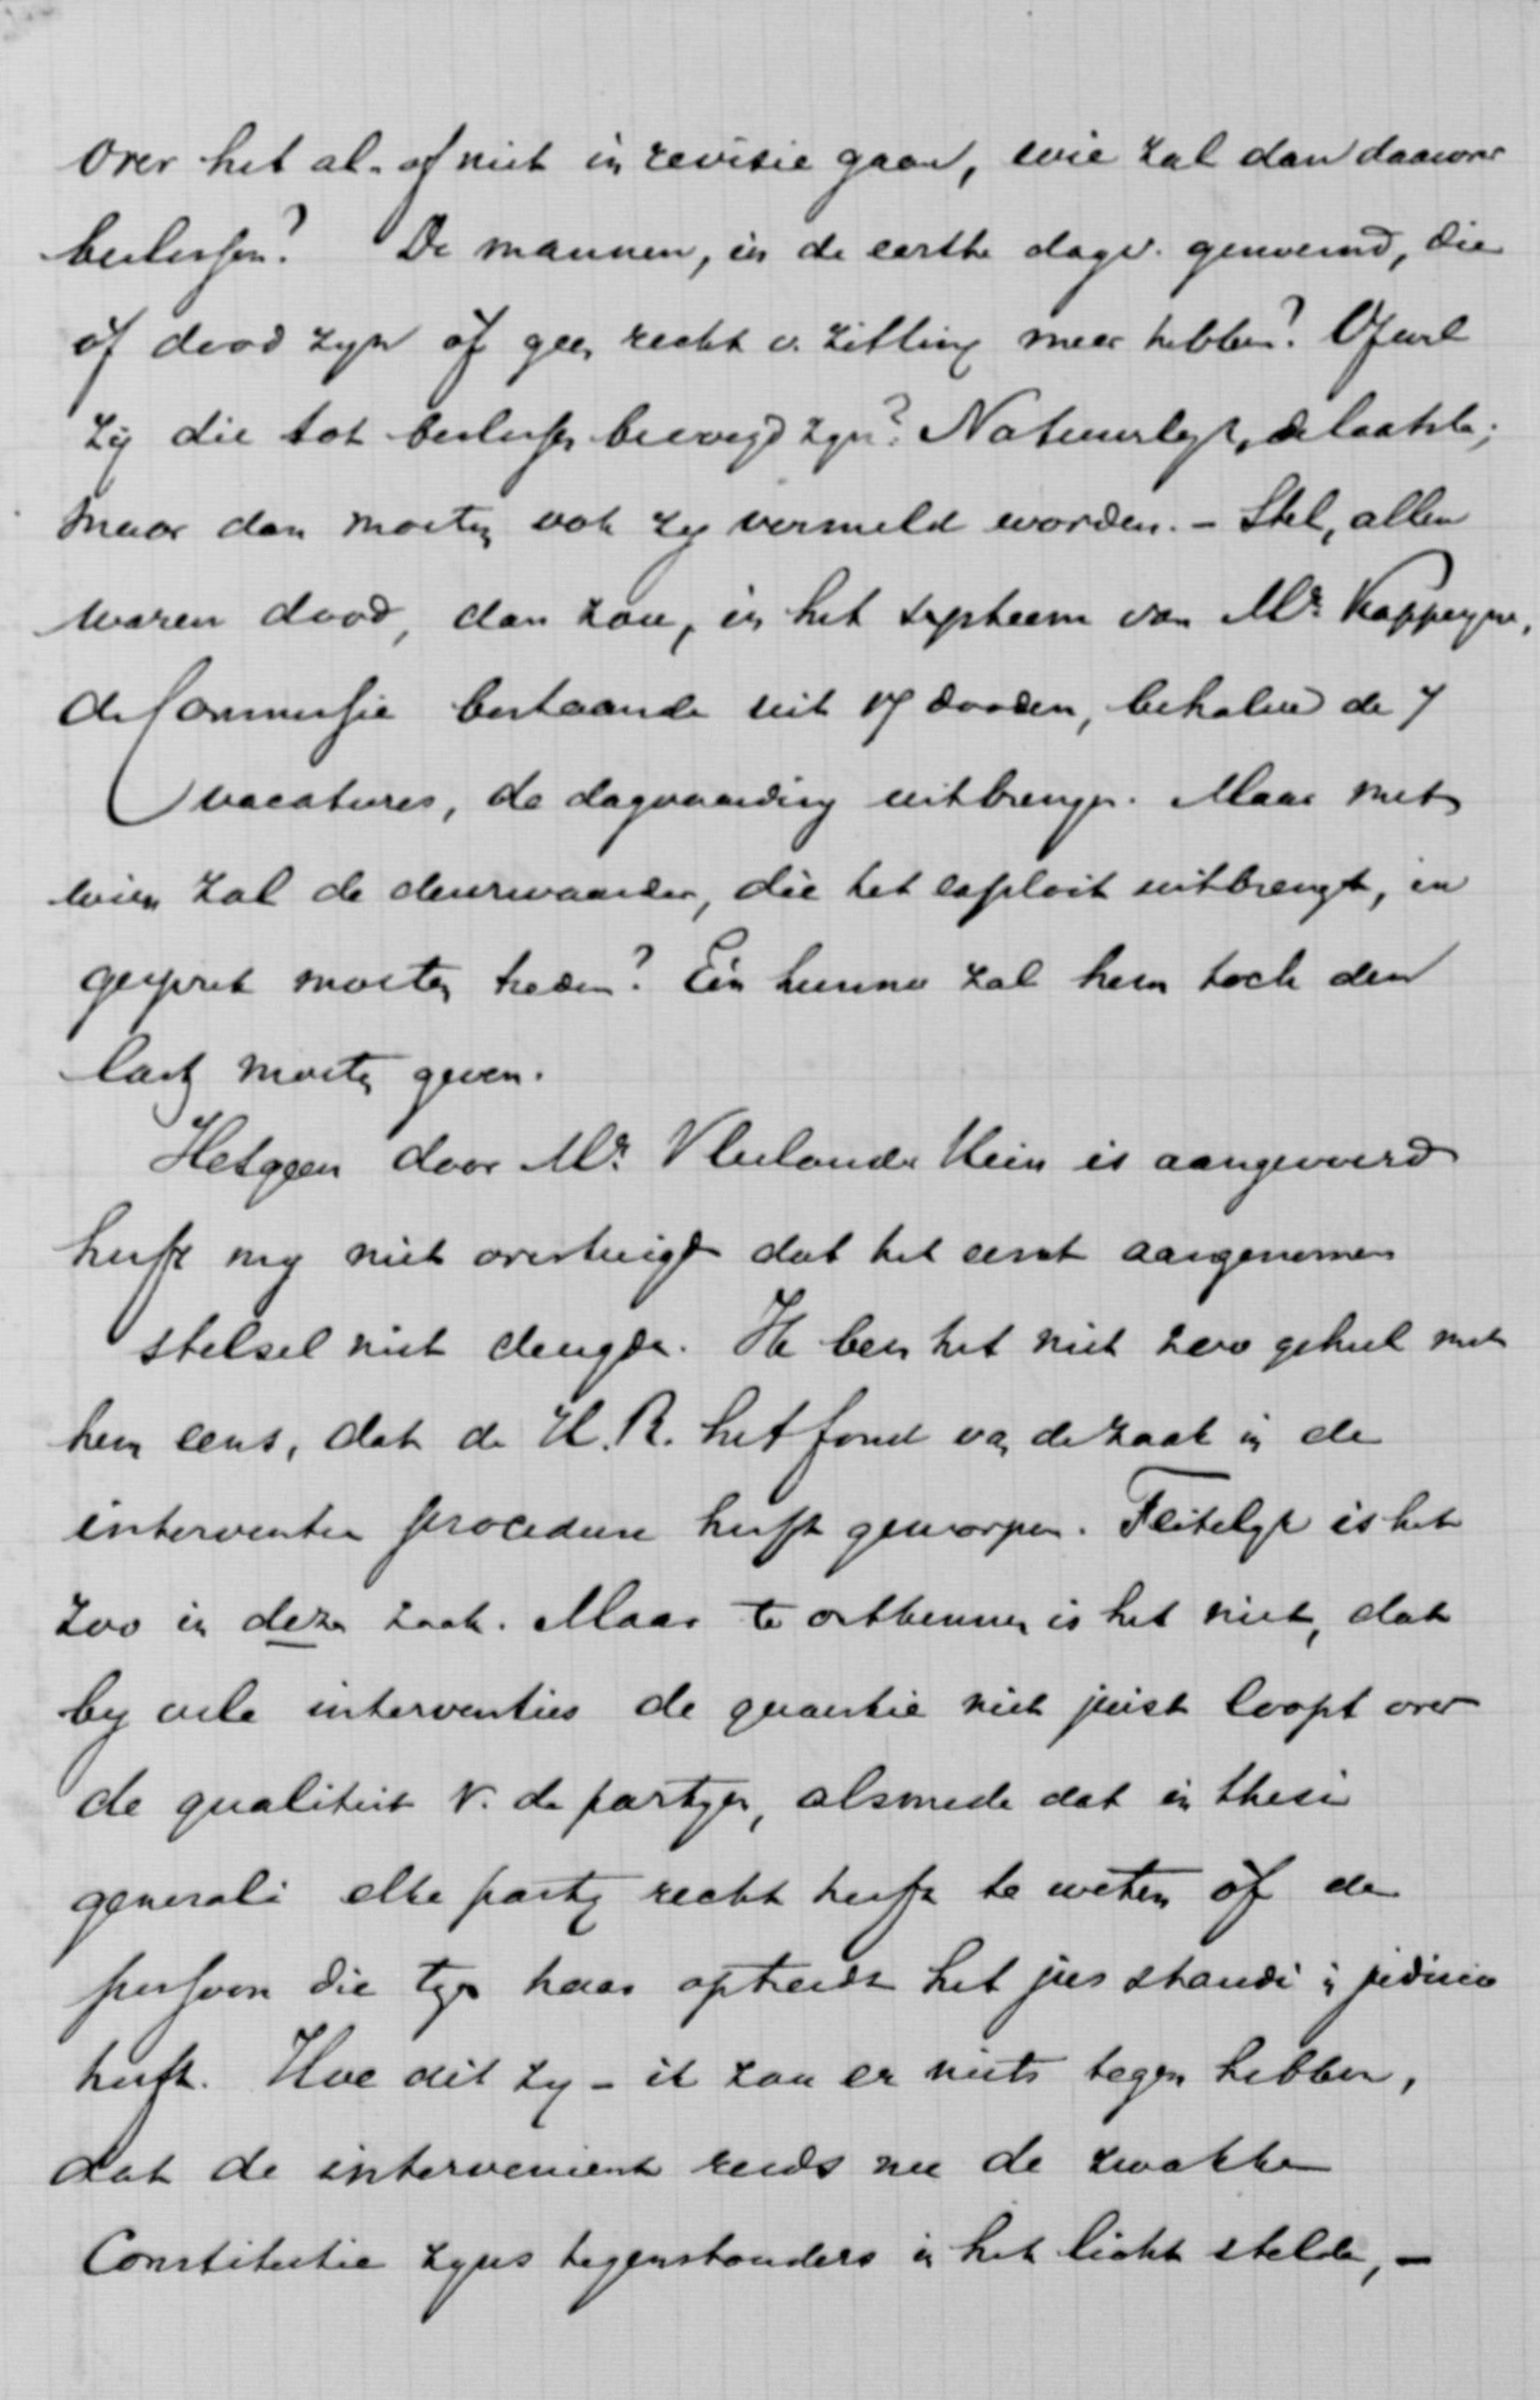 Over het al- of niet in revisie gaan, wie zal dan daarover
beslissen? De mannen, in de eerste dagv. genoemd, die
òf dood zyn òf geen recht v. zitting meer hebben? Ofwel
zy die tot beslissen bevoegd zyn? Natuurlyk, de laatste;
maar dan moeten ook zy vermeld worden. – Stel, allen
waren dood, dan zou, in het systeem van Mr. Kappeyne,
de Commissie bestaande uit dooden, behalve de 7
vacatures, de dagvaarding uitbrengen. Maar met
wien zal de deurwaarder, die het exploit uitbrengt, in
gesprek moeten treden? Eén hunner zal hem toch den
last moeten geven.
Hetgeen door Mr. Vlielander Hein is aangevoerd
heeft my niet overtuigd dat het eerst aangenomen
stelsel niet deugde. Ik ben het niet zoo geheel met
hem eens, dat de H.R. het fond van de zaak in de
interventie procedure heeft geworpen. Feitelyk is het
zoo in deze zaak. Maar te ontkennen is het niet, dat
by vele interventies de quaestie niet juist loopt over
de qualiteit v. de partyen, alsmede dat in thesi
generali elke party recht heeft te weten òf de
persoon die tegen haar optreedt het jus standi in judicio
heeft. Hoe dit zy – ik zou er niets tegen hebben,
dat de interveniënt reeds nu de zwakke
Constitutie zyns tegenstanders in het licht stelde, –